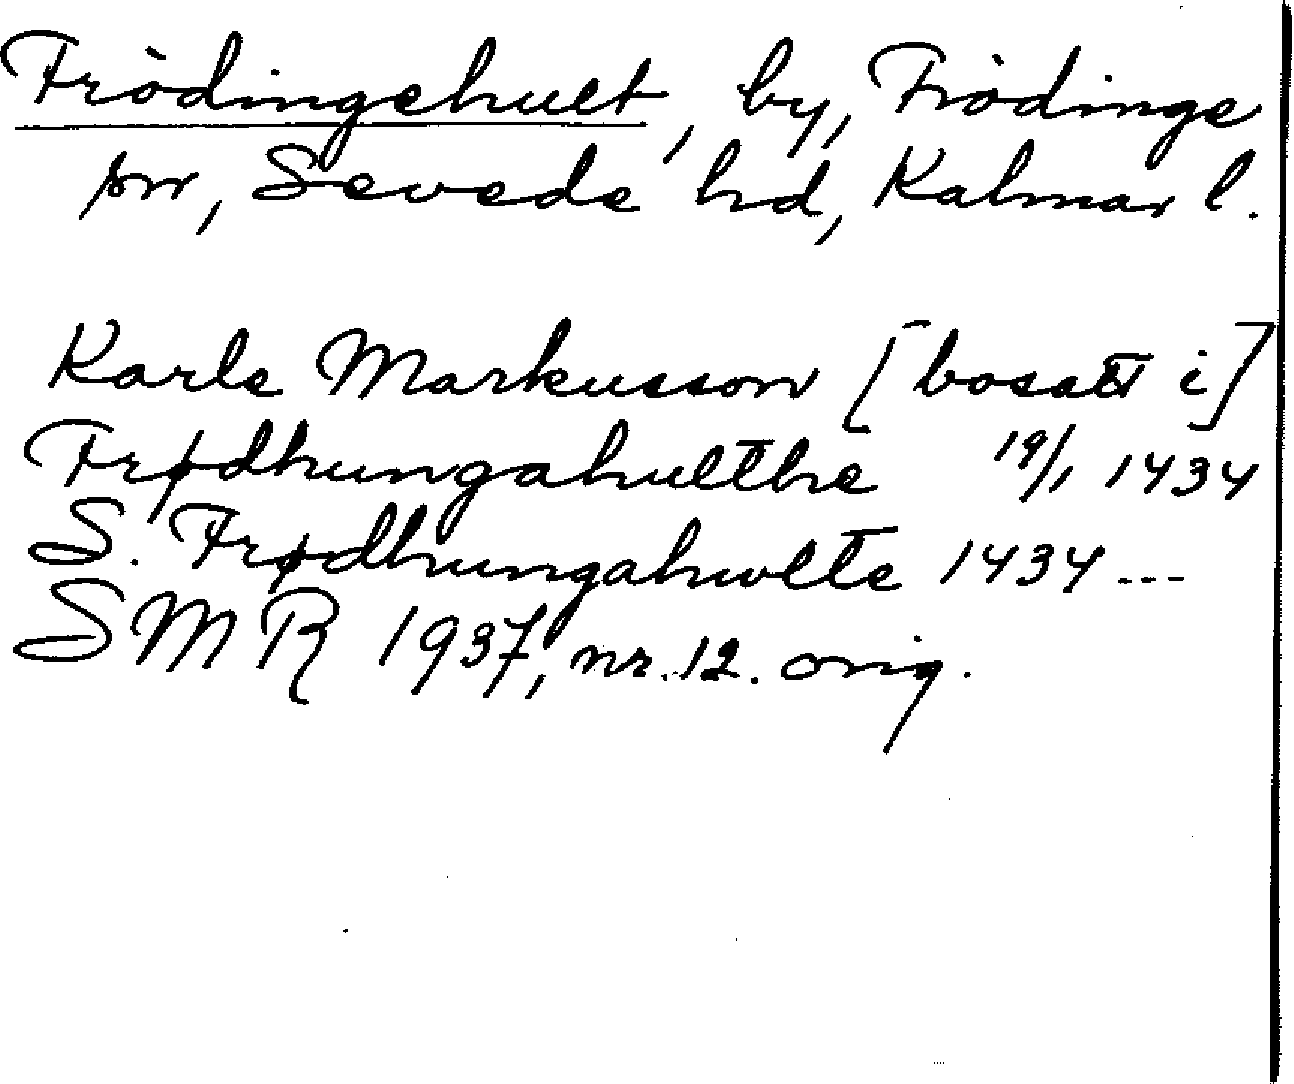 Frödingehult, by, Frödinge
sn, Sevede hd, Kalmar l.
Karle Markusson [bosatt i]
Frødhungahulthe 19/1 1434
S. Frødhungahwlte 1434---
SMR 1937, nr. 12. orig.